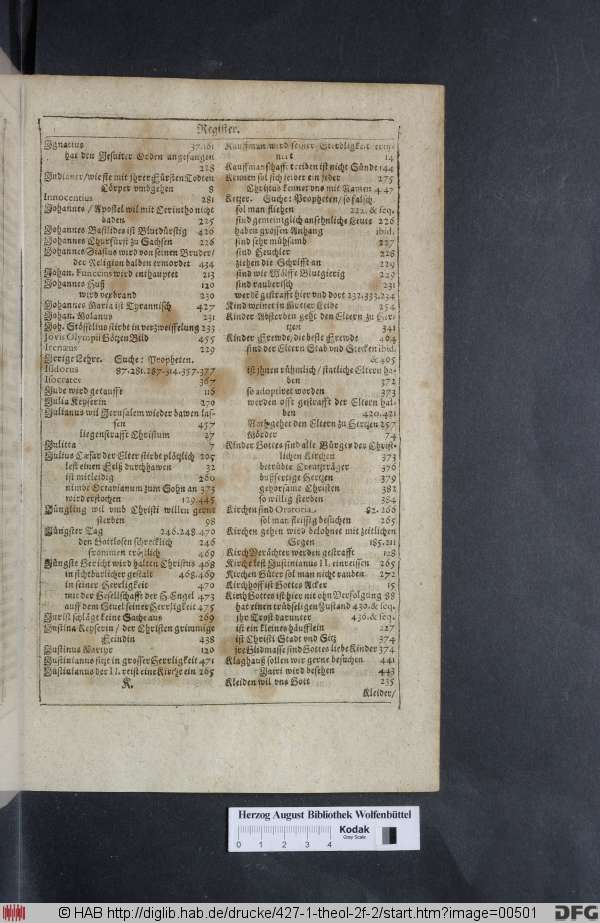 Register.
Ignatius 37.161
hat den Jesuiter Orden angefangen
228
Indianer/wie sie mit jhrer Fürsten Todten
Cörper vmbgehen 8
Innocentius 281
Johannes / Apostel wil mit Cerintho nicht
baden 225
Johannes Basilides ist Blutdürstig 426
Johannes Churfürst zu Sachsen 226
Johannes Siasius wird von seinen Bruder/
der Religion halben ermordet 434
Johan. Funccius wird enthauptet 213
Johannes Huß 120
wird verbrand 230
Johannes Maria ist Tyrannisch 427
Johan. Molanus 231
Joh. Stösselius stirbt in verzweiffelung 233
Jovis Olympii Götzen Bild 455
Irenæus 229
Irrige Lehre. Suche: Propheten.
Isidorus 87.281.287.314.357.377
Isocrates 367
Jude wird getaufft 116
Julia Keyserin 270
Julianus wil Jerusalem wieder bawen las-
sen 457
liegenstrafft Christum 27
Julitta 7
Julius Cæsar der Elter stirbt plötzlich 205
lest einen Felß durchhawen 32
ist mitleidig 260
nimbt Octavianum zum Sohn an 373
wird erstochen 129.445
Jüngling wil vmb Christi willen gerne
sterben 98
Jüngster Tag 246.248.470
den Gottlosen schrecklich 246
frommen tröstlich 469
Jüngste Gericht wird halten Christus 468
in sichtbarlicher gestalt 468.469
in seiner Herrligkeit 470
mit der Gesellschafft der H. Engel 473
auff dem Stuel seiner Herrligkeit 475
Jurist schlägt keine Sache aus 269
Justina Keyserin / der Christen grimmige
Feindin 438
Justinus Martyr 120
Justinianus sitzt in grosser Herrligkeit 471
Justinianus der II. reist eine Kirche ein 265
K.
Kauffman wird seiner
14
Kauffmanschafft treiben ist nicht Sünde 144
Kennen sol sich leiber ein jeder 275
Christus kennet vns mit Namen 447
Ketzer. Suche: Propheten/so falsch.
sol man fliehen 222. & seq.
sind gemeiniglich ansehnliche Leute 226
haben grossen Anhang ibid.
sind sehr mühsamb 227
sind Heuchler 228
ziehen die Schrifft an 229
sind wie Wölffe Blutgierig 229
sind rauberisch 231
werdē gestrafft hier vnd dort 232.333.234
Kind weinet in Mutter Leibe 254
Kinder Absterben geht den Eltern zu Her-
tzen 341
Kinder Frewde, die beste Frewde 404
sind der Eltern Stab vnd Stecken ibid.
&405
ist jhnen rühmlich / statliche Eltern ha-
ben 372
so adoptiret worden 373
werden offt gestrafft der Eltern hal-
ben 420.421
Noth gehet den Eltern zu Hertzen 257
Mörder 74
Kinder Gottes sind alle Bürger der Christ-
lichen Kirchen 373
betrübte Creutzträger 376
bußfertige Hertzen 379
gehorsame Christen 382
so willig sterben 384
Kirchen sind Oratoria 82.266
sol man fleissig besuchen 265
Kirchen gehen wird belohnet mit zeitlichen
Segen 185.211
Kirch Verächter werden gestrafft 128
Kirche lest Justinianus II. einreissen 265
Kirchen Güter sol man nicht rauben 272
Kirchhoff ist Gottes Acker 15
Kirch Gottes ist hier nit ohn Verfolgung 88
hat einen trübseligen Zustand 430.& seq.
jhr Trost darunter 436.& seq.
ist ein kleines häufflein 227
ist Christi Stadt vnd Sitz 374
jre Glidmasse sind Gottes liebe Kinder 374
Klaghauß sollen wir gerne besuchen 441
Jairi wird besehen 443
Kleiden wil vns Gott 235
Kleider/
Herzog August Bibliothek Wolfenbüttel
0 1 2 3 4
Kodak
Gray Scale
© HAB http://diglib.hab.de/drucke/427-1-theol-2f-2/start.htm?image=00501
DFG